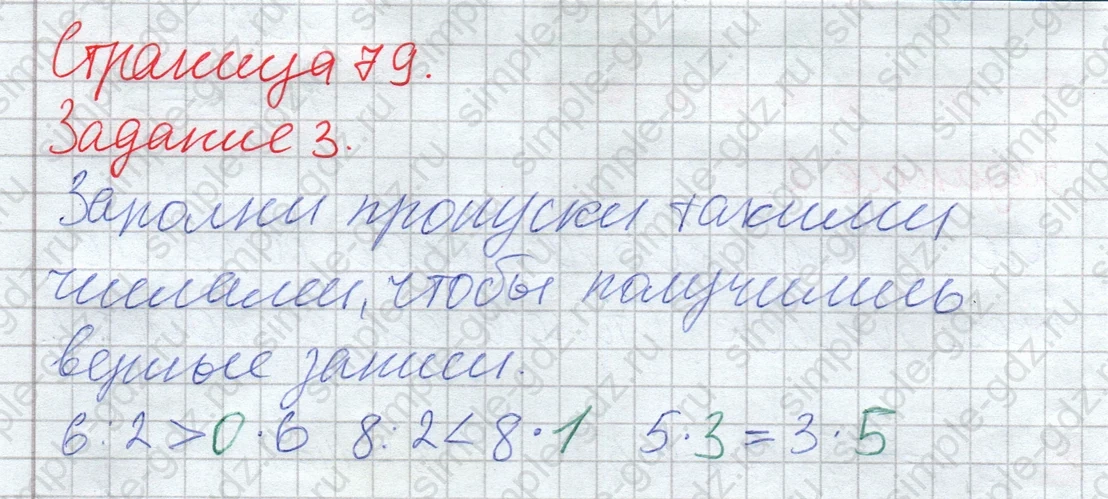 Страница 79.
Задание 3.
Заполни пропуски такими
числами, чтобы получились
верные записи.
6:2>0·6 8:2<8·1 5·3=3·5